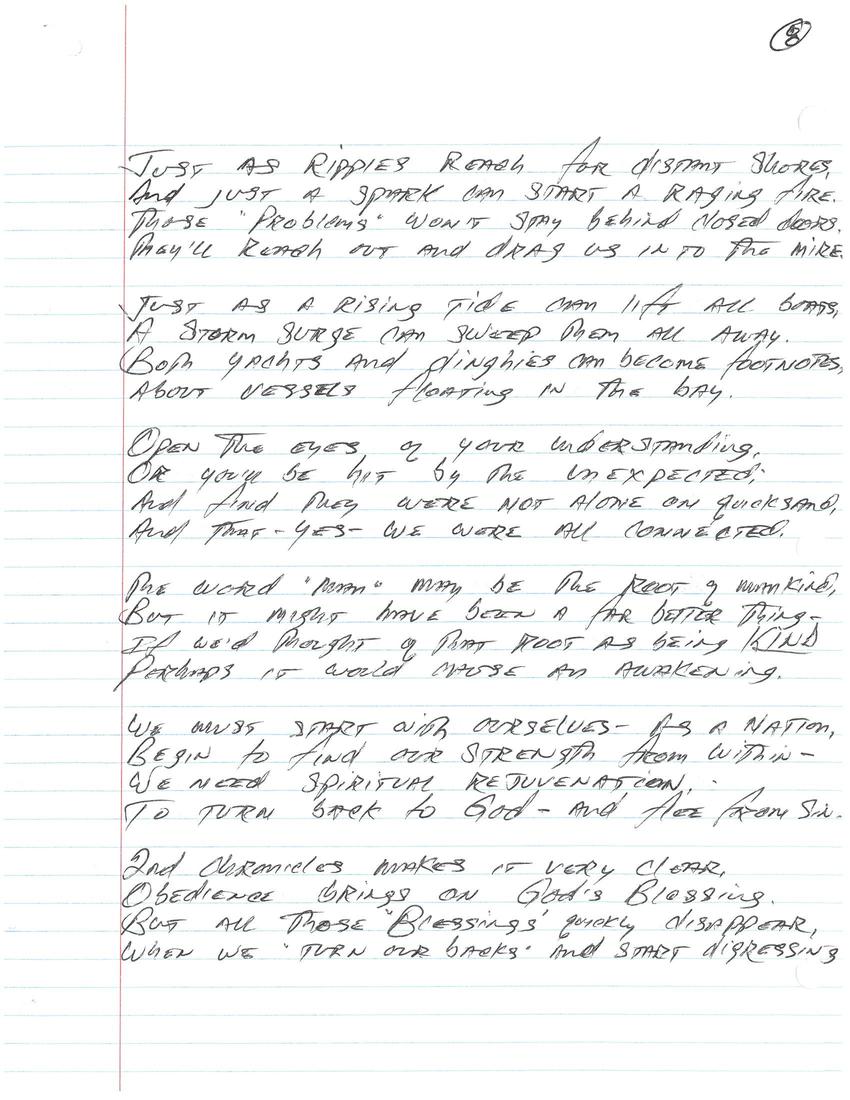 8
Just as Ripples Reach for distant Shores,
And just a spark can start a Raging fire.
Those "Problems" won't stay behind closed doors.
They'll Reach out and drag us in to the mire.
Just as a Rising Tide can lift all boats,
A storm surge can sweep them all away.
Both yachts and dinghies can become footnotes,
About vessels floating in the bay.
Open the eyes of your understanding,
Or you'll be hit by the unexpected;
And find they were not alone on quicksand,
And that - yes - we were all connected.
The word "man" may be the root of mankind,
But it might have been a far better thing -
If we'd thought of that root as being KIND
Perhaps it would cause an awakening.
We must start with ourselves - As a Nation,
Begin to find our strength from within -
We need spiritual rejuvenation,
To turn back to God - and flee from Sin.
2nd Chronicles makes it very clear,
Obedience brings on God's Blessing.
But all those "Blessings" quickly disappear,
When we "turn our backs" and start digressing